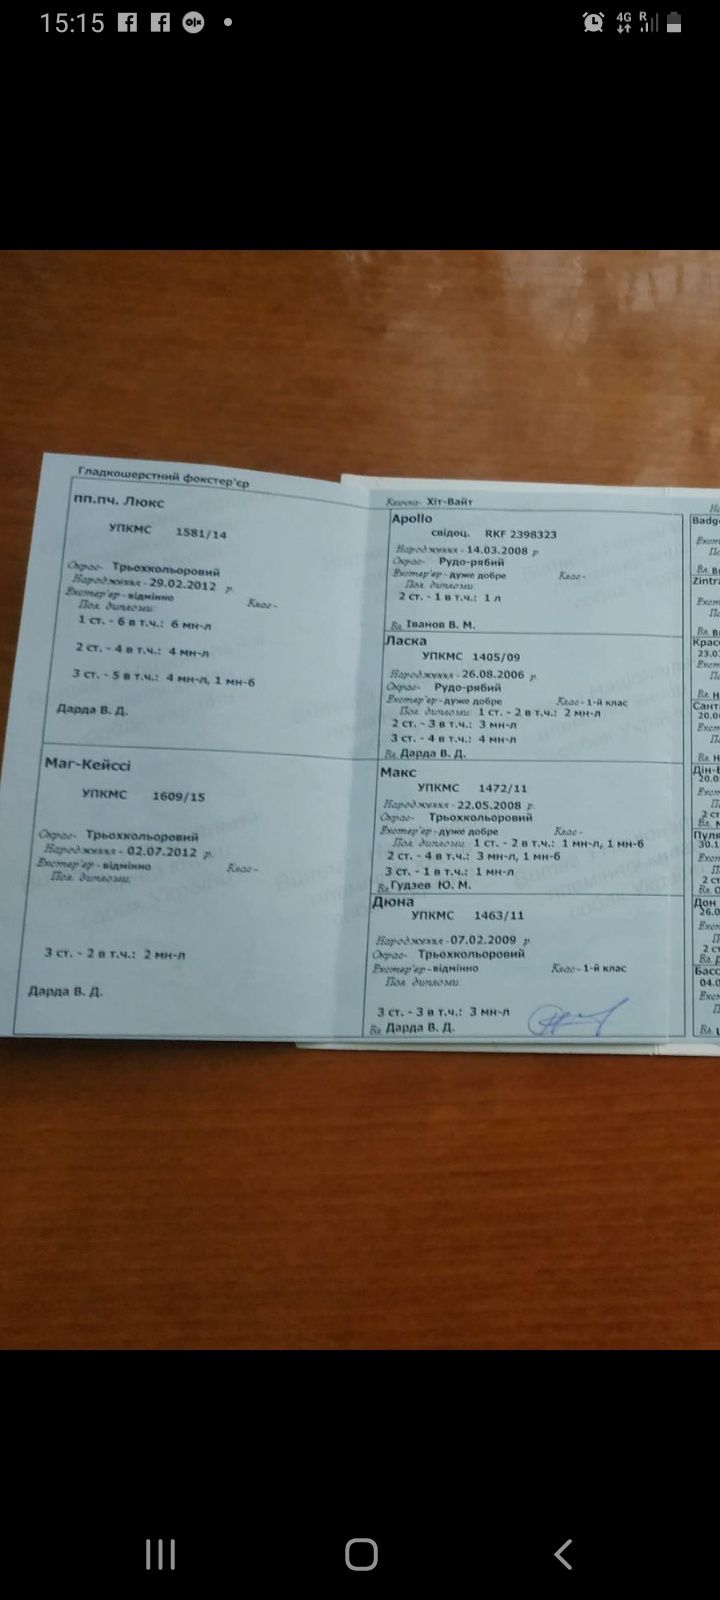 15:15
4G R
Гладкошерстний фокстер'єр
пп.пч. Люкс
УПКМС 1581/14
Окрас- Трьохкольоровий
Народження - 29.02.2012 р.
Екстер'єр - відмінно Клас-
Пол. дипломи:
1 ст. - 6 в т.ч.: 6 мн-л
2 ст. - 4 в т.ч.: 4 мн-л
3 ст. - 5 в т.ч.: 4 мн-л, 1 мн-б
Дарда В. Д.
Маг-Кейссі
УПКМС 1609/15
Окрас- Трьохкольоровий
Народження - 02.07.2012 р.
Екстер'єр - відмінно Клас-
Пол. дипломи:
3 ст. - 2 в т.ч.: 2 мн-л
Дарда В. Д.
Кличка- Хіт-Вайт
Apollo
свідоц. RKF 2398323
Народження - 14.03.2008 р
Окрас- Рудо-рябий
Екстер'єр - дуже добре Клас-
Пол. дипломи:
2 ст. - 1 в т.ч.: 1 л
Вл. Іванов В. М.
Ласка
УПКМС 1405/09
Народження - 26.08.2006 р
Окрас- Рудо-рябий
Екстер'єр - дуже добре Клас - 1-й клас
Пол. дипломи: 1 ст. - 2 в т.ч.: 2 мн-л
2 ст. - 3 в т.ч.: 3 мн-л
3 ст. - 4 в т.ч.: 4 мн-л
Вл. Дарда В. Д.
Макс
УПКМС 1472/11
Народження - 22.05.2008 р.
Окрас- Трьохкольоровий
Екстер'єр - дуже добре Клас-
Пол. дипломи: 1 ст. - 2 в т.ч.: 1 мн-л, 1 мн-б
2 ст. - 4 в т.ч.: 3 мн-л, 1 мн-б
3 ст. - 1 в т.ч.: 1 мн-л
Вл. Гудзев Ю. М.
Дюна
УПКМС 1463/11
Народження - 07.02.2009 р
Окрас- Трьохкольоровий
Екстер'єр - відмінно Клас - 1-й клас
Пол. дипломи:
3 ст. - 3 в т.ч.: 3 мн-л
Вл. Дарда В. Д.
Badge
Zintra
Крас
23.0
Сант
20.0
Дін-
20.0
2 ст
Пуля
30.1
2 ст
Дон
26.0
2 с
Басс
04.0